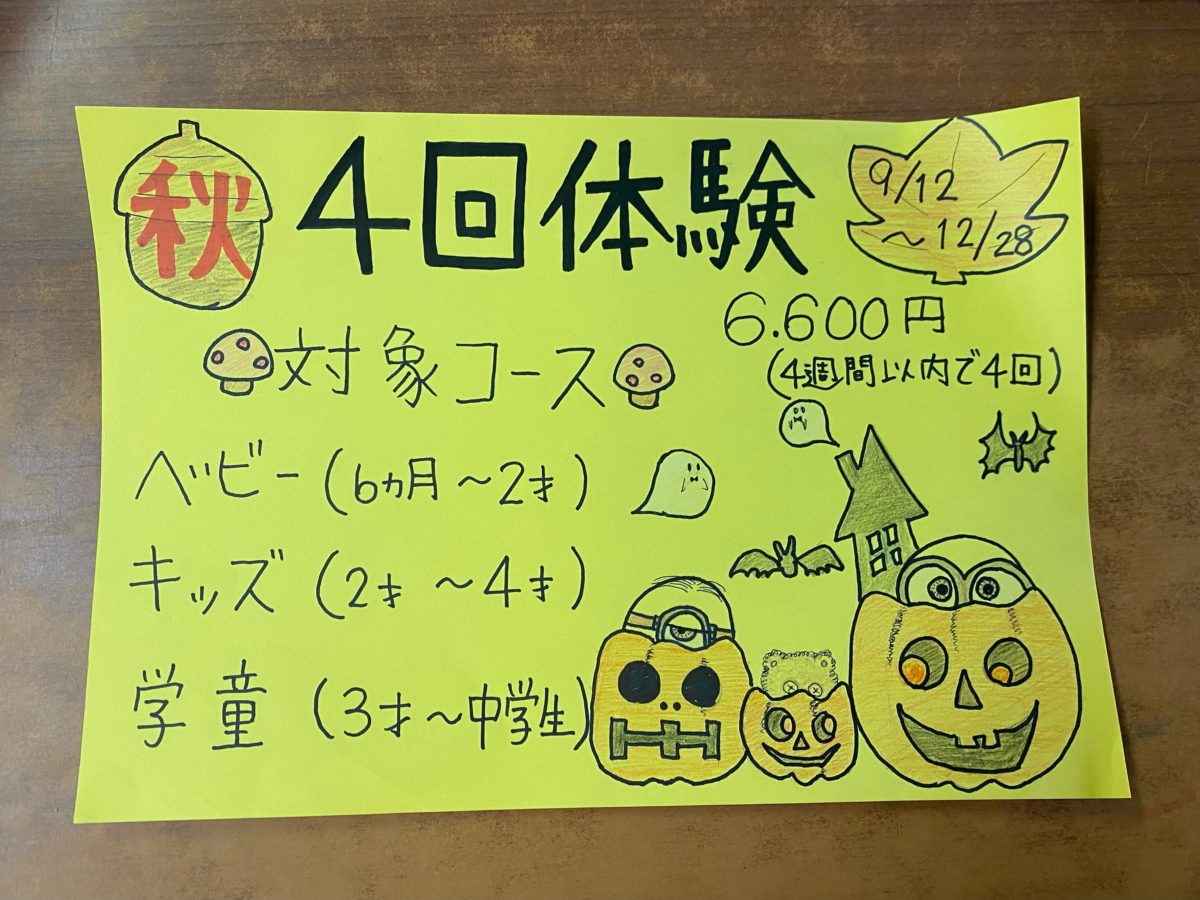 秋
4回体験
9/12
～12/28
6.600円
(4週間以内で4回)
対象コース
ベビー(6ヵ月～2才)
キッズ(2才～4才)
学童(3才～中学生)